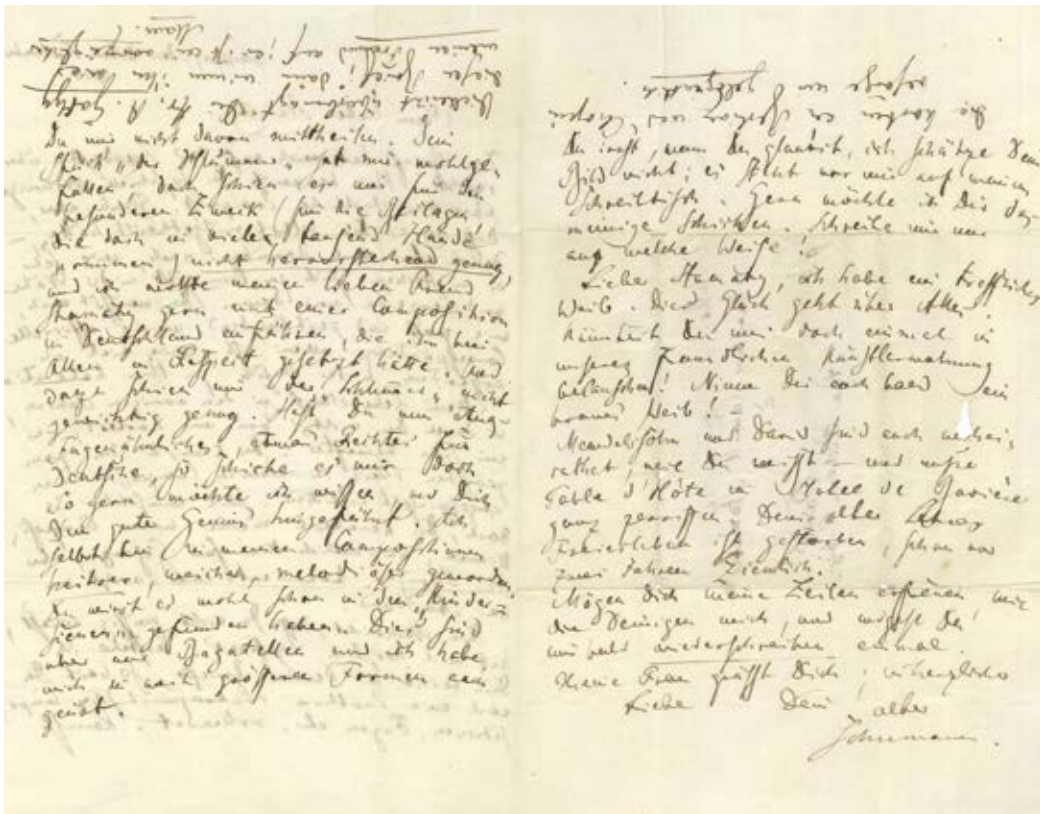 Vielleicht überbringt Dir Hr. A. Gathy
diesen Brief; dann nimm ihn
meinen Freund auf; er ist ein vorzüglicher
Mann.
Du mir nicht davon mittheilen. Dein
Stück „der Schlummer“ hat mir wohlge-
fallen, doch schien es mir für den
besonderen Zweck (für die Beilagen,
die doch in vieler tausend Hände
kommen) nicht hervorstehend genug,
und ich wollte meinen lieben Freund
Stamaty gern mit einer Composition
in Deutschland einführen, die ihn bei
Allen in Respect gesetzt hätte. Und
dazu schien mir der „Schlummer“ nicht
gewichtig genug. Hast Du nun etwas
Fugenähnliches, etwas Rechtes für
Deutsche, so schicke es mir doch.
So gern möchte ich wissen, wo Dich
Dein guter Genius hingeführt. Ich
selbst bin in meinen Compositionen
heitrer, weicher, melodiöser geworden.
Du wirst es wohl schon in den „Kinder-
scenen“ gefunden haben. Dies sind
aber nur Bagatellen und ich habe
mich in weit grösseren Formen
geübt.
Chopin
Du irrst, wenn Du glaubst, ich schätze Dein
Bild nicht; es steht vor mir auf meinem
Schreibtisch. Gern möchte ich Dir das
meinige schicken. Schreibe mir nur
auf welche Weise!
Lieber Stamaty, ich habe ein treffliches
Weib. Dies Glück geht über Alles.
Könntest Du uns doch einmal in
unserer freundlichen Künstlerwohnung
belauschen! Nimm Dir auch bald ein
braves Weib! –
Mendelssohn und David sind auch verhei-
rathet, wie Du weißt – und unsre
Table d'Hôte im Hotel de Bavière
ganz zerrissen. Dein alter Lehrer
ist gestorben, schon vor
zwei Jahren ziemlich.
Mögen Dich meine Zeilen erfreuen, wie
die Deinigen mich, und mögst Du
uns bald wiederschreiben einmal.
Meine Frau grüßt Dich;
Liebe Dein alter
Schumann.